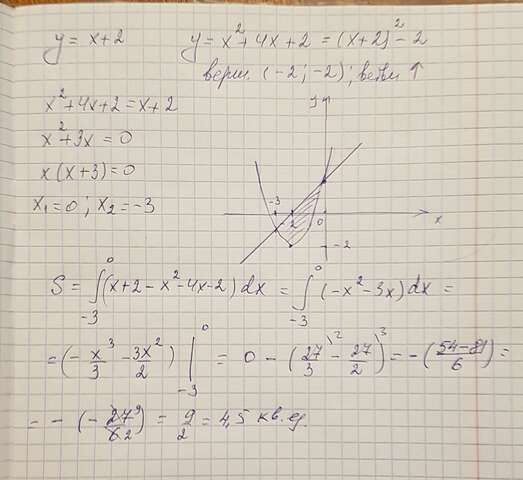 y = x+2    y = x²+4x+2 = (x+2)² - 2
верш. (-2; -2); ветви ↑
x²+4x+2 = x+2
x²+3x = 0
x(x+3) = 0
x₁=0; x₂=-3
y
-3 -2 0 x
-2
S = ∫₋₃⁰ (x+2-x²-4x-2) dx = ∫₋₃⁰ (-x²-3x) dx =
= (-x³/3 - 3x²/2) |₋₃⁰ = 0 - (27/3\² - 27/2\³) = -(54-81/6) =
= -(-27⁹/6₂) = 9/2 = 4,5 кв. ед.